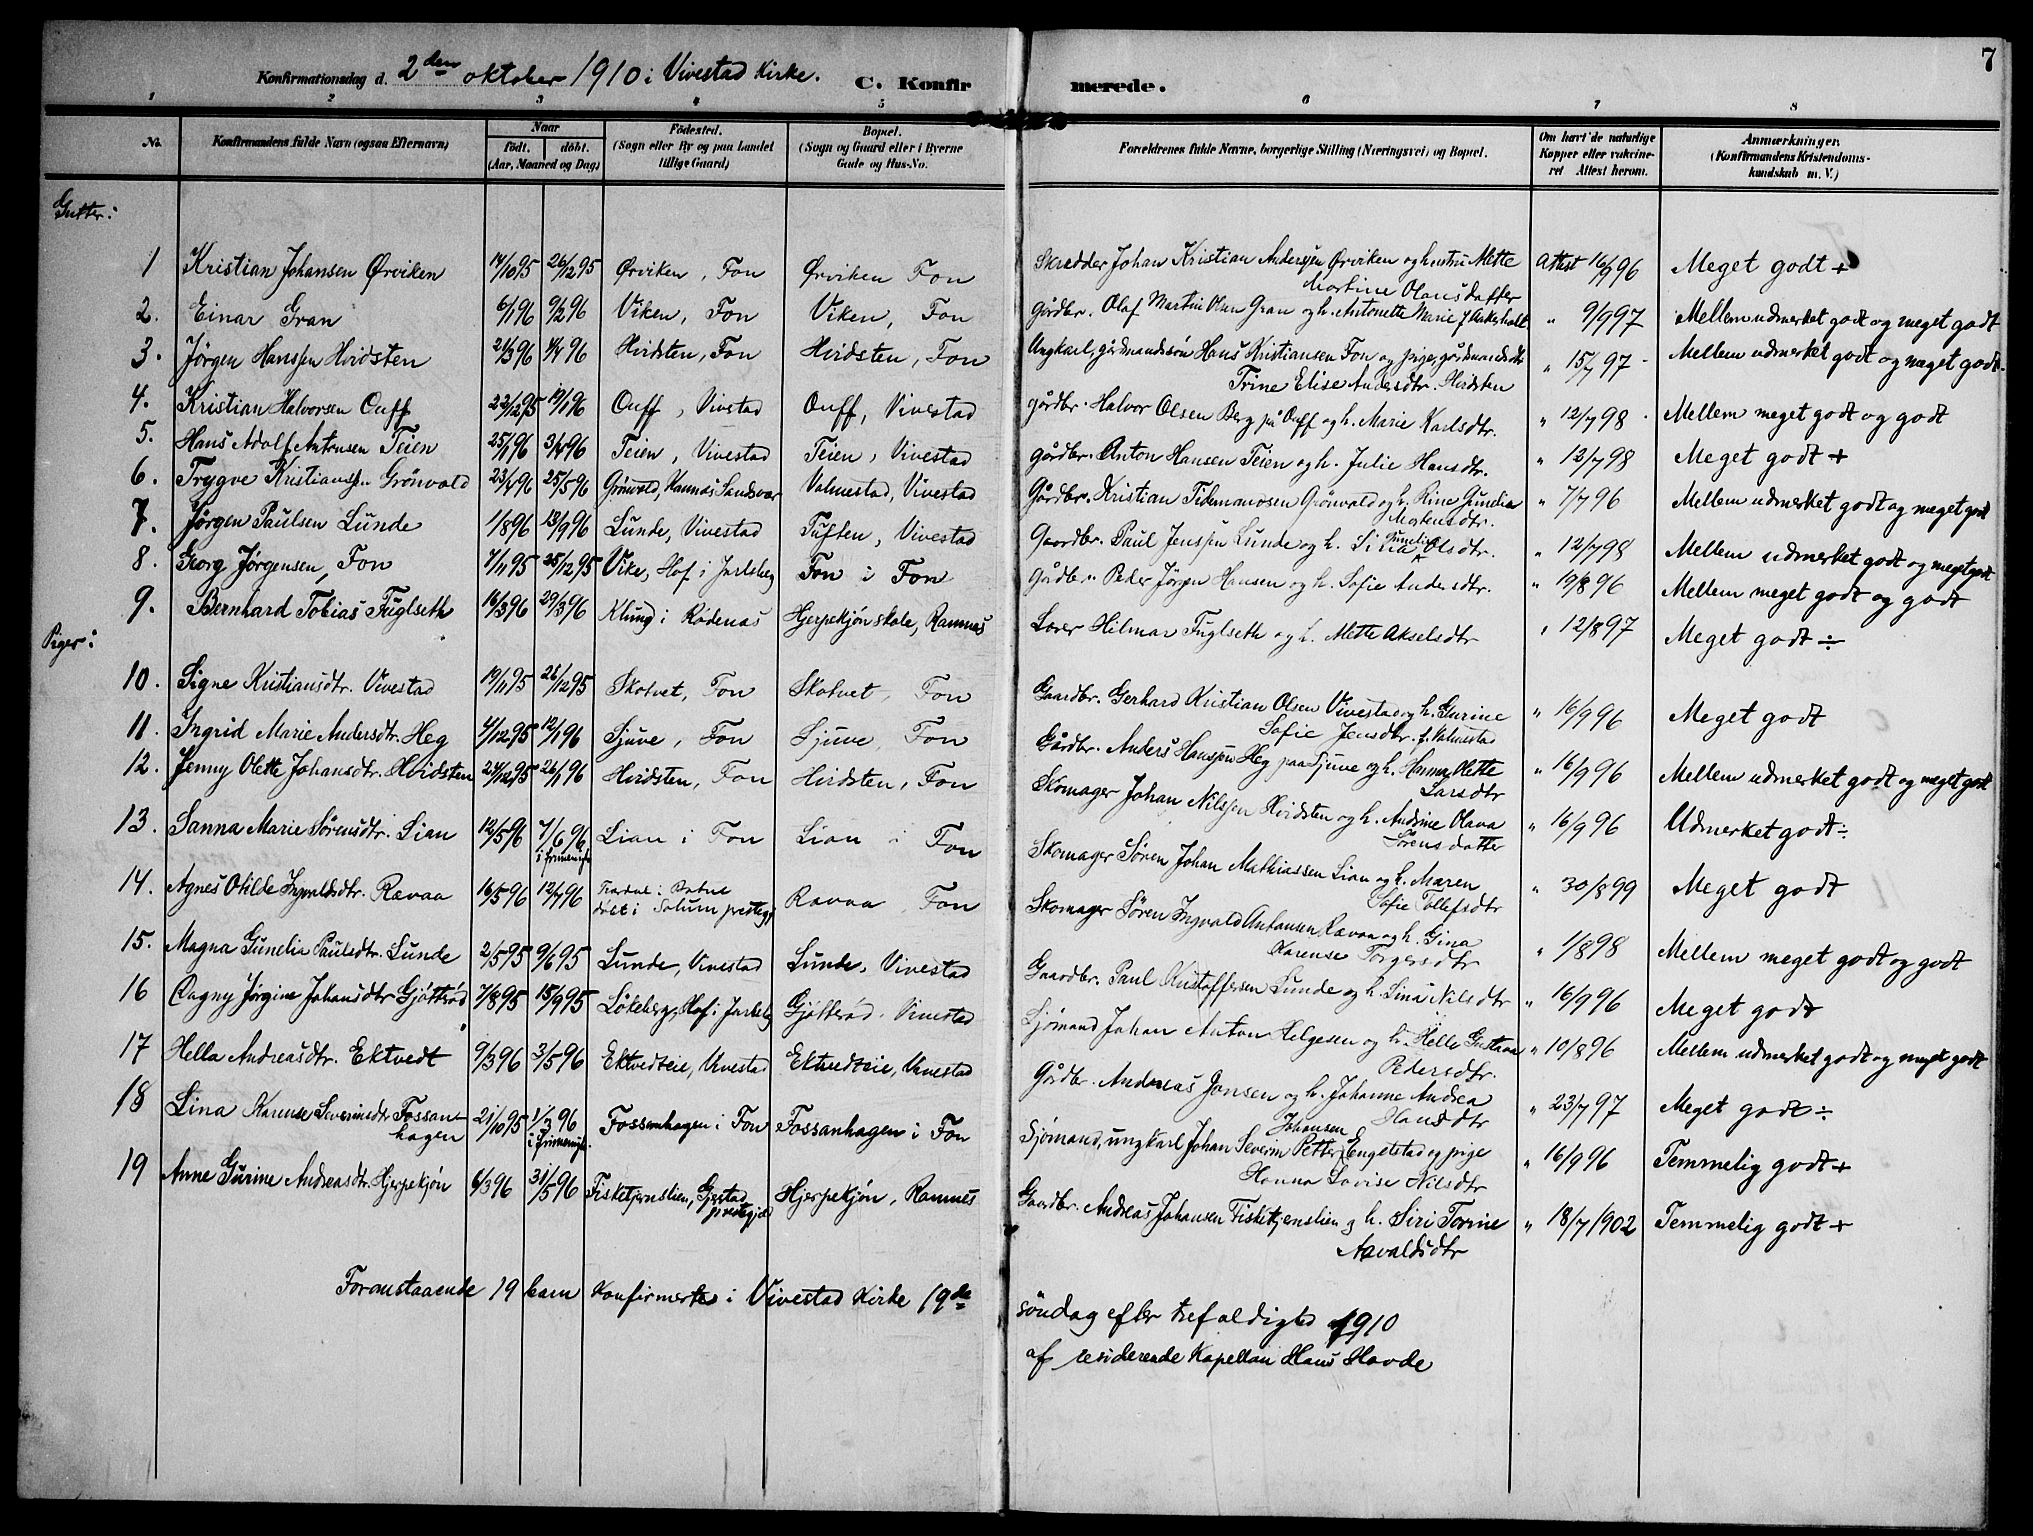 7
Konfirmationsdag d. 2den oktober 1910 i Vivestad Kirke. C. Konfirmerede.
1 2 3 4 5 6 7 8
No. Konfirmandens fulde Navn (ogsaa Efternavn) Naar født. døbt. (Aar, Maaned og Dag) Fødested. (Sogn eller By og paa Landet tillige Gaard) Bopæl. (Sogn og Gaard eller i Byerne Gade og Hus-No. Forældrenes fulde Navne, borgerlige Stilling (Næringsvei) og Bopæl. Om havt de naturlige Kopper eller vakcineret Attest herom. Anmærkninger. (Konfirmandens Kristendomskundskab m. V.)
Gutter:
1 Kristian Johansen Ørviken 14/10 95 26/12 95 Ørviken, Fon Ørviken Fon Skredder Johan Kristian Anderssen Ørviken og hustru Mette Martine Olausdatter Attest 16/9 96 Meget godt +
2. Einar Gran 6/1 96 9/2 96 Viken, Fon Viken, Fon gårdbr. Olaf Martin Olsen Gran og h. Antonette Marie J Aakerholt " 9/9 97 Mellem udmerket godt og meget godt
3. Jörgen Hanssen Hvidsten 21/3 96 1/4 96 Hvidsten, Fon Hvidsten, Fon Ungkarl, gårdmandssön Hans Kristiansen Fon og pige, gårdmandsdtr Trine Elise Andersdtr. Hvidsten " 15/7 97 Mellem udmerket godt og meget godt.
4. Kristian Halvorsen Ouff 22/12 95 19/1 96 Ouff, Vivstad Ouff, Vivestad gårdbr. Halvor Olsen Berg på Ouff og h. Marie Karlsdtr. " 12/7 98 Mellem meget godt og godt
5. Hans Adolf Antonsen Teien 25/1 96 3/4 96 Teien, Vivestad Teien, Vivestad gårdbr. Anton Hansen Teien og h. Julie Hansdtr. " 12/7 98 Meget godt +
6. Trygve Kristianss. Grönvold 23/4 96 25/5 96 Grönvold, Hannas Sandsvær Valmestad, Vivestad Gårdbr. Kristian Tidemansen Grönvold og h. Rine Gunelia Mortensdtr. " 7/7 96 Mellem udmerket godt og meget godt
7. Jörgen Paulsen Lunde 1/8 96 13/9 96 Lunde, Vivestad Tuften, Vivestad Gaardbr. Paul Jenssen Lunde og h. Sina Gunelia Olsdtr. " 12/7 98 Mellem udmerket godt og meget godt
8. Georg Jörgensen, Fon 7/11 95 25/12 95 Vike, Hof i Jarlsberg Fon i Fon Gådbr. Peder Jörgen Hansen og h. Sofie Andersdtr. " 19/8 96 Mellem meget godt og godt
9. Bernhard Tobias Fuglseth 16/3 96 29/3 96 Klung i Rödenas Hjerpekjøn skole, Ramnas Lærer Hilmar Fuglseth og h. Mette Akselsdtr " 12/8 97 Meget godt ÷
Piger:
10. Signe Kristiansdtr. Vivestad 19/11 95 28/12 95 Skotvet, Fon Skotvet, Fon Gaardbr. Gerhard Kristian Olsen Vivestad og h. Gurine Sofie Jensdtr. f. Valmestad " 16/9 96 Meget godt
11. Ingrid Marie Andersdtr. Heg 4/12 95 12/1 96 Sjuve, Fon Sjuve, Fon Gårdbr. Anders Hanssen Heg paa Sjuve og h. Hanna Mette Larsdtr " 16/9 96 Mellem udmerket godt og meget godt
12. Jenny Olette Johansdtr. Hvidsten 24/12 95 26/1 96 Hvidsten, Fon Hvidsten, Fon Skomager Johan Nilssen Hvidsten og h. Andrine Olava Sörensdatter " 16/9 96 Udmerket godt ÷
13. Sanna Marie Sörensdtr. Lian 12/5 96 7/6 96 i frimenigh Lian i Fon Lian i Fon Skomager Sören Johan Mathiassen Lian og h. Maren Sofie Tollefsdtr " 30/8 99 Meget godt
14. Agnes Otilde Ingvaldsdtr. Ravaa 16/5 96 12/7 96 döbt i Solum prestegj Ravaa, Fon Skomager Sören Ingvald Antonsen Ravaa og h. Gina Karense Torgersdtr " 1/8 98 Mellem meget godt og godt
15. Magna Gunelia Paulsdtr. Lunde 2/5 95 9/6 95 Lunde, Vivestad Lunde, Vivestad Gaardbr. Paul Kristoffersen Lunde og h. Lina Nilsdtr " 16/9 96 Meget godt
16 Dagny Jörgine Johansdtr Gjötteröd 7/8 95 15/9 95 Lökeberg, Hof i Jarlsbg Gjötteröd, Vivestad Sjömand Johan Anton Helgesen og h. Helle Gustava Pedersdtr. " 10/8 96 Mellem udmerket godt og meget godt
17 Hella Andreasdtr. Ektvedt 9/3 96 3/5 96 Ektvedteie, Vivestad Ektvedteie, Vivestad Gårdbr. Andreas Jonsen og h. Johanne Andrea Hansdtr " 23/7 97 Meget godt ÷
18 Lina Karense Severinsdtr Fossanhagen 21/10 95 1/3 96 i frimenigh. Fossanhagen i Fon Fossanhagen i Fon Sjömand, ungkarl Johan Severin Petter Johansen Engelstad og pige Hanna Lovise Nilsdtr " 16/9 96 Temmelig godt +
19 Anne Gurine Andreasdtr. Hjerpekjøn 6/3 96 31/5 96 Fisketjernslien, Gjestad prestegjeld Hjerpekjøn, Ramnes Gaardbr. Andreas Johansen Fisketjenslien og h. Siri Torine Aavaldsdtr " 18/7 1902 Temmelig godt +
Foranstaaende 19 barn konfirmertes i Vivestad Kirke 19de söndag efter trefoldighed 1910
af residerende Kapellan Hans Hovde